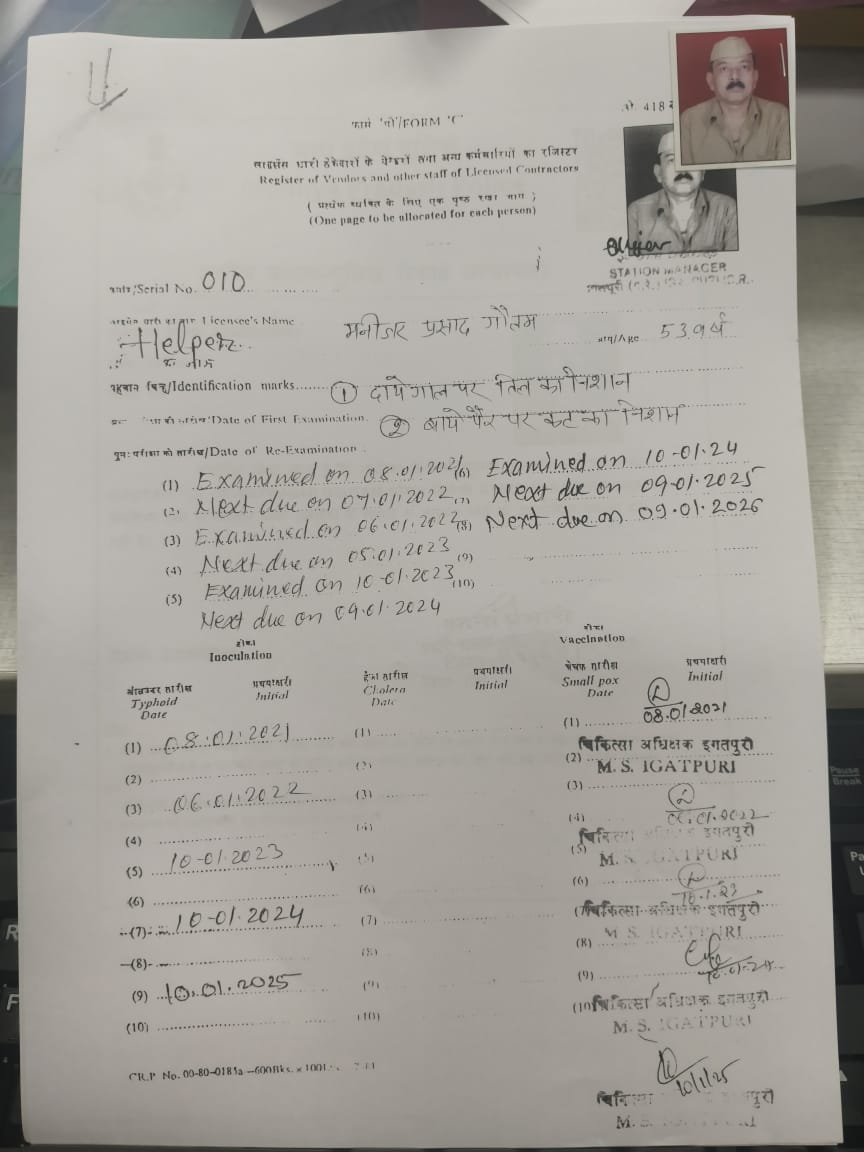 फार्म 'सी'/FORM 'C'
418
लाइसेंस धारी ठेकेदारों के वेण्डरों तथा अन्य कर्मचारियों का रजिस्टर
Register of Vendors and other staff of Licensed Contractors
( प्रत्येक व्यक्ति के लिए एक पृष्ठ रखा जाय )
(One page to be allocated for each person)
STATION MANAGER
/Serial No. 010
Licensee's Name
प्रसाद गौतम
/Age 53 वर्ष
Helper
पहचान चिन्ह/Identification marks
① दाये गाल पर तिल का निशान
Date of First Examination
② बाये पैर पर कट का निशान
पुनः परीक्षा की तारीख/Date of Re-Examination
(1) Examined on 08.01.2021 (6) Examined on 10-01.24
(2) Next due on 07.01.2022 (7) Next due on 09-01.2025
(3) Examined on 06.01.2022 (8) Next due on 09.01.2026
(4) Next due on 05.01.2023 (9)
(5) Examined on 10-01.2023 (10)
Next due on 09.01.2024
टीका टीका
Inoculation Vaccination
तारीख प्रथमाक्षरी हैजा तारीख प्रथमाक्षरी चेचक तारीख प्रथमाक्षरी
Typhoid Initial Cholera Initial Small pox Initial
Date Date Date
08.01.2021
(1) 08.01.2021 (1) (1)
चिकित्सा अधिक्षक इगतपुरी
(2) (2) (2) M. S. IGATPURI
(3) 06.01.2022 (3) (3)
(4) (4) (4) 06.01.2022
चिकित्सा अधिक्षक इगतपुरी
(5) 10-01.2023 (5) (5) M. S. IGATPURI
(6) (6) (6)
(7) 10-01.2024 (7) (7) चिकित्सा अधिक्षक इगतपुरी
M. S. IGATPURI
(8) (8) (8)
(9) 10.01.2025 (9) (9)
(10) (10) (10) चिकित्सा अधिक्षक इगतपुरी
M. S. IGATPURI
CR.P No. 00-80-0185a
10/1/25
M. S. IGATPURI